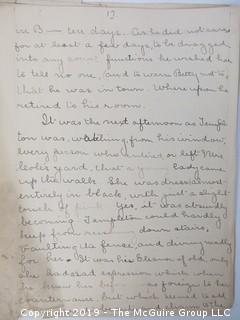 13.
in B— ten days. As he did not care
for at least a few days, to be dragged
into any social functions he wished her
to tell no one, and to warn Betty not to,
that he was in town. Whereupon he
retired to his room.
It was the next afternoon as Temple
ton was, watching, from his window,
every person who entered or left Mrs
yard, that a young lady came
up the walk. She was dressed almost
entirely in black, with just a slight
touch of Yes, it was absurdly
becoming. Templeton could hardly
keep from down stairs,
vaulting the fence, and
for her. It was his Eleanor of old, only
she had a sad expression which when
he knew her before was foreign to her
countenance, but which seemed to add
and charm
Copyright 2019 - The McGuire Group LLC